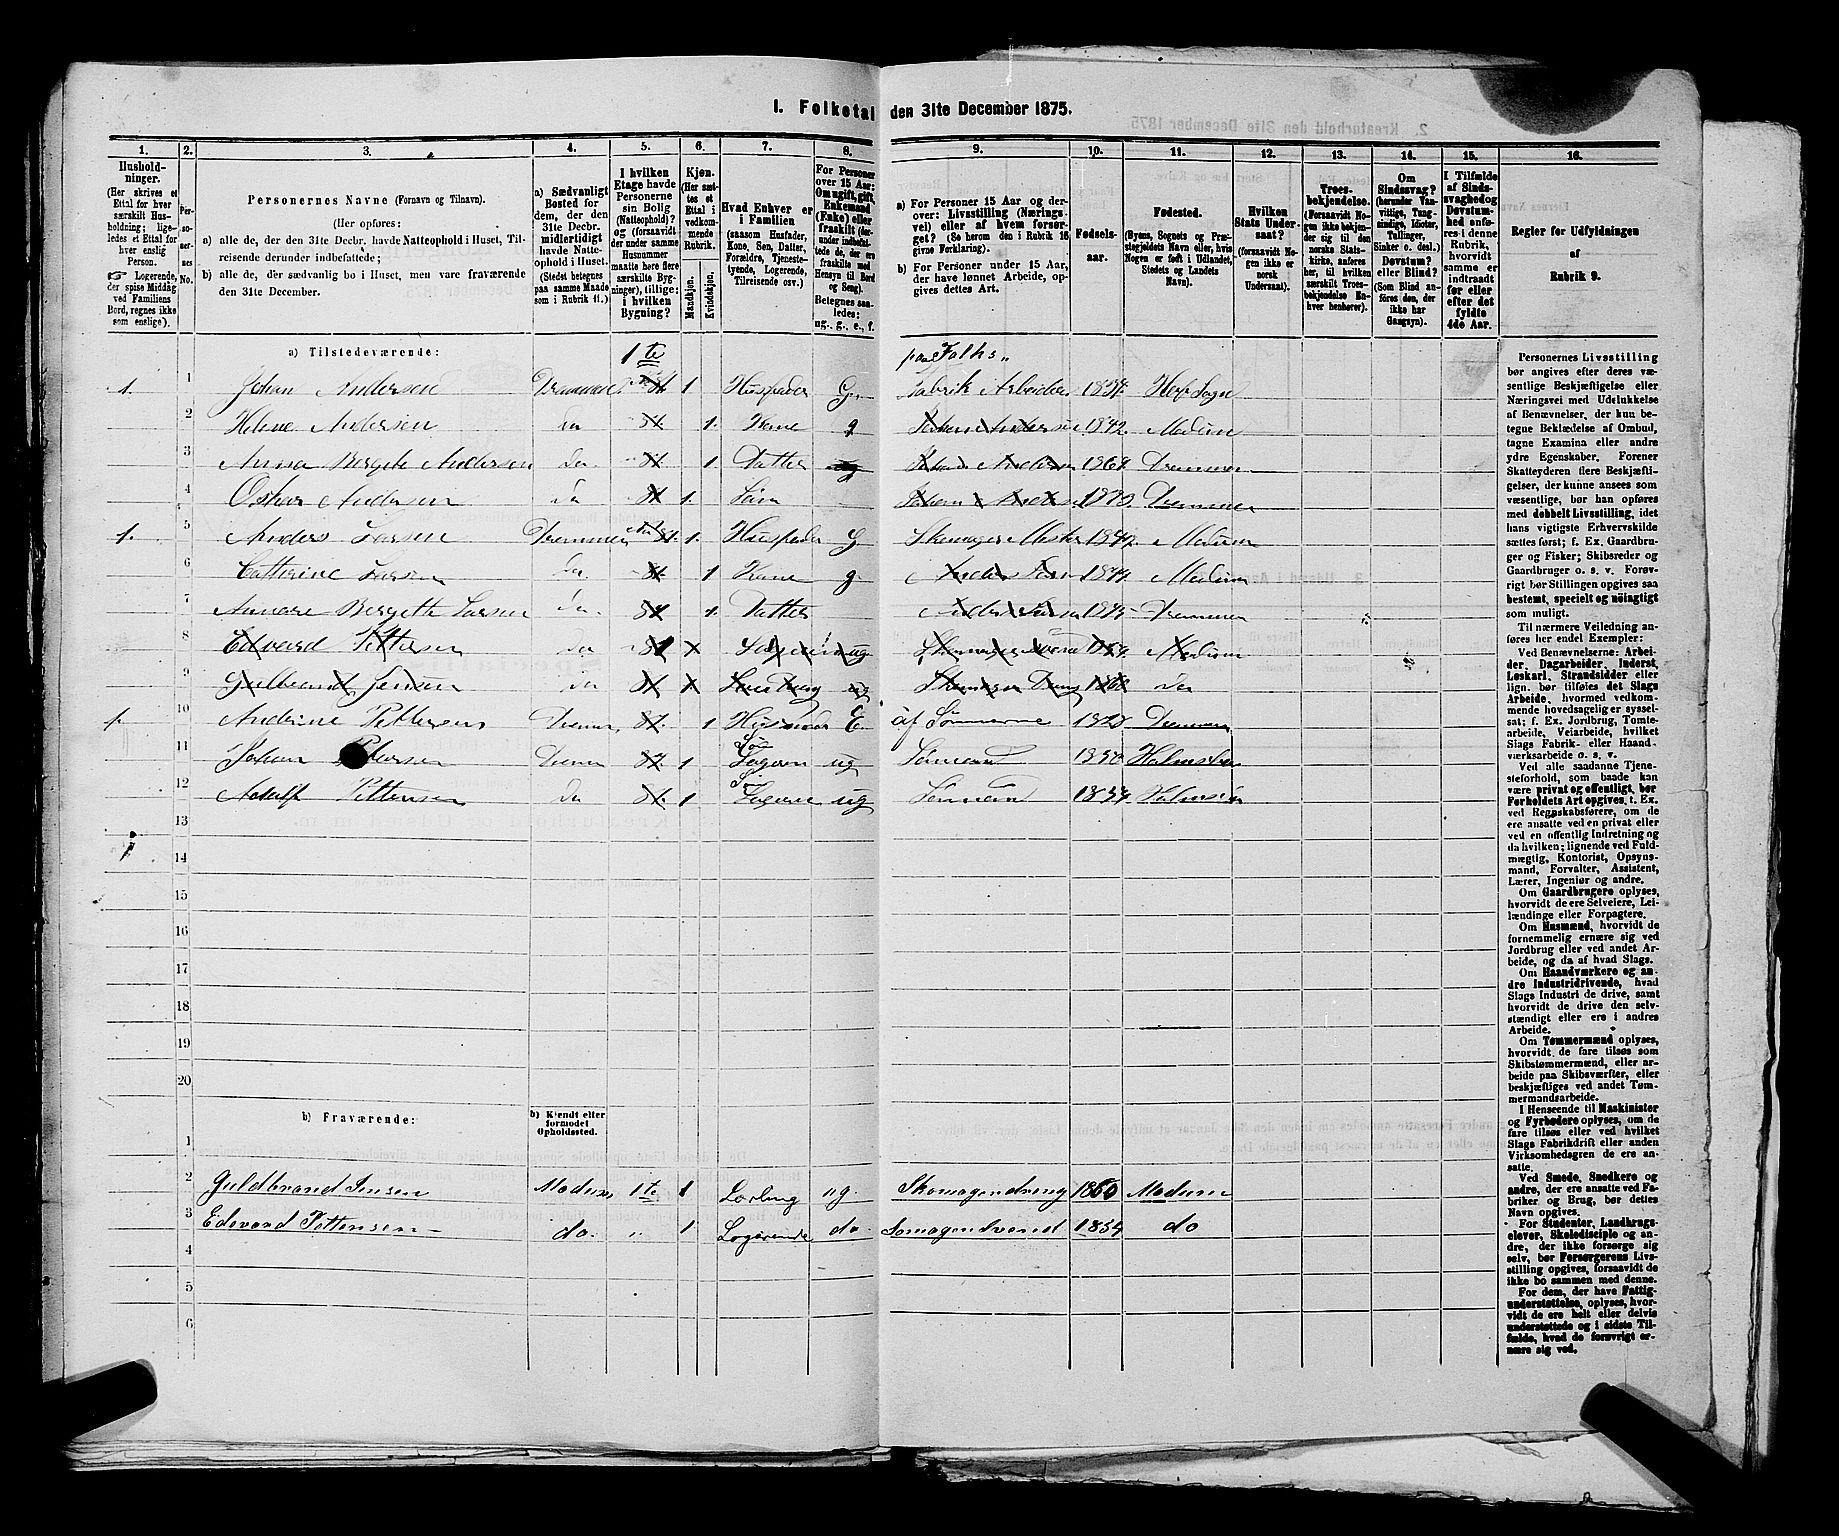 I. Folketal den 31te December 1875.
1. 2. 3. 4. 5. 6. 7. 8. 9. 10. 11. 12. 13. 14. 15. 16.
Husholdninger.
(Her skrives et
Ettal for hver
særskilt Husholdning;
ligeledes et Ettal for
hver enslig
Person.
Logerende,
der spise Middag
ved Familiens
Bord, regnes ikke
som enslige).
Personernes
No.
Personernes Navne (Fornavn og Tilnavn).
(Her opføres:
a) alle de, der den 31te Decbr. havde Natteophold i Huset, Tilreisende
derunder indbefattede;
b) alle de, der sædvanlig bo i Huset, men vare fraværende
den 31te December.
a) Sædvanligt
Bosted for
dem, der den
31te Decbr.
midlertidigt
havde Natteophold
i Huset.
(Stedet betegnes
paa samme Maade
som i Rubrik 11.)
I hvilken
Etage havde
Personerne
sin Bolig
(Natteophold)?
og (forsaavidt
der under samme
Husnummer
maatte høre flere
særskilte Bygninger),
tillige:
i hvilken
Bygning?
Kjøn.
(Her sættes
et
Ettal i
vedkommende
Rubrik.
Mandkjøn.
Kvindekjøn.
Hvad Enhver er
i Familien
(saasom Husfader,
Kone, Søn, Datter,
Forældre, Tjenestetyende,
Logerende,
Tilreisende osv.)
For Personer
over 15 Aar:
Om ugift, gift,
Enkemand
(Enke) eller
fraskilt (derunder
indbefattede
de, der ere
fraskilte med
Hensyn til Bord
og Seng).
Betegnes saaledes:
ug., g., e., f.
a) For Personer 15 Aar og derover:
Livsstilling (Næringsvei)
eller af hvem forsørget?
(Se herom den i Rubrik 16
givne Forklaring).
b) For Personer under 15 Aar,
der have lønnet Arbeide, opgives
dettes Art.
Fødselsaar.
Fødested.
(Byens, Sognets og Præstegjeldets
Navn eller, hvis
Nogen er født i Udlandet,
Stedets og Landets
Navn).
Hvilken
Stats Undersaat?
(forsaavidt Nogen
ikke er
norsk
Undersaat).
Troesbekjendelse.
(Forsaavidt Nogen
ikke bekjender
sig til den
norske Statskirke,
anføres
her, til hvilken
særskilt Troesbekjendelse
Enhver
henhører).
Om
Sindssvag?
(herunder Vanvittige,
Tungsindige,
Idioter,
Tullinger,
Sinker o. desl.)
Døvstum?
eller Blind?
(Som Blind anføres
den, der
ikke har
Gangsyn).
I Tilfælde
af Sindssvaghed
og
Døvstumhed
anføres
i denne
Rubrik,
hvorvidt
samme er
indtraadt
før eller
efter det
fyldte
4de Aar.
Regler for Udfyldningen
af
Rubrik 9.
a) Tilstedeværende:
1 te
paa Foths
1. 1 Johan Andersen Drammen 1 Husfader G. Fabrik Arbeider
2 Helene Andersen Do 1. Kone g Johan Andersen 1842 Modum
3 Anna Bergete Andersen Do. 1. Datter Johan Andersen 1869 Drammen
4 Oskar Andersen Do 1. Søn Johan Andersen Drammen
1. 5 Anders Larsen Drammen 1. Husfader G Skomager Mester Modum
6 Catherine Larsen Do. 1 Kone g. Anders Larsen 1844 Modum
7 Annare Bergette Larsen Do. 1. Datter Anders Larsen Drammen
8 Edvard Pettersen Do ug Skomager Svend Modum
9 Gulbrand Jensen Do ug Skomager Dreng Do
1. 10 Andrine Pettersen Dramen 1 E af Sønnerne 1828 Drammen
11 Johan Petersen Dramen 1 Søn Logeren ug Sømand
12 Adolf Pettersen Do 1 Logeren ug Sømand
13
14
15
16
17
18
19
20
b) Fraværende:
b) Kjendt eller
formodet
Opholdssted.
1
2 Guldbrand Jensen Modum 1te 1 Lærling ug. Skomagerdreng 1860 Modum
3 Edvard Pettensen Do. „ 1 Logerende do. Somagersvend 1854 do
4
5
6
Personernes Livsstilling
bør angives efter deres væsentlige
Beskjæftigelse eller
Næringsvei med Udelukkelse
af Benævnelser, der kun betegne
Beklædelse af Ombud,
tagne Examina eller andre
ydre Egenskaber. Forener
Skatteyderen flere Beskjæftigelser,
der kunne ansees som
væsentlige, bør han opføres
med dobbelt Livsstilling, idet
hans vigtigste Erhvervskilde
sættes først; f. Ex. Gaardbruger
og Fisker; Skibsreder og
Gaardbruger o. s. v. Forøvrigt
bør Stillingen opgives saa
bestemt, specielt og nøiagtigt
som muligt.
Til nærmere Veiledning anføres
her endel Exempler:
Ved Benævnelserne: Arbeider,
Dagarbeider, Inderst,
Løskarl, Strandsidder eller
lign. bør tilføies det Slags
Arbeide, hvormed vedkommende
hovedsagelig er sysselsat;
f. Ex. Jordbrug, Tomtearbeide,
Veiarbeide, hvilket
Slags Fabrik- eller Haandværksarbeide
o. s. v.
Ved alle saadanne Tjenesteforhold,
som baade kan
være privat og offentlig, bør
Forholdets Art opgives, f. Ex.
ved Regnskabsførere, om de
ere ansatte ved en privat eller
ved en offentlig Indretning og
da hvilken; lignende ved Fuldmægtig,
Kontorist, Opsynsmand,
Forvalter, Assistent,
Lærer, Ingeniør og andre.
Om Gaardbrugere oplyses,
hvorvidt de ere Selveiere, Leilændinge
eller Forpagtere.
Om Husmænd, hvorvidt de
fornemmelig ernære sig ved
Jordbrug eller ved andet Arbeide,
og da af hvad Slags.
Om Haandværkere og andre
Industridrivende, hvad
Slags Industri de drive, samt
hvorvidt de drive den selvstændigt
eller ere i andres
Arbeide.
Om Tømmermænd oplyses,
hvorvidt de fare tilsøs som
Skibstømmermænd, eller arbeide
paa Skibsværfter, eller
beskjæftiges ved andet Tømmermandsarbeide.
I Henseende til Maskinister
og Fyrbødere oplyses, om de
fare tilsøs eller ved hvilket
Slags Fabrikdrift eller anden
Virksomhedsgren de ere ansatte.
Ved Smede, Snedkere og
andre, der ere ansatte ved Fabriker
og Brug, bør dettes
Navn opgives.
For Studenter, Landbrugselever,
Skoledisciple og andre,
der ikke forsørge sig
selv, bør Forsørgerens Livsstilling
opgives, forsaavidt de
ikke bo sammen med denne.
For dem, der have Fattigunderstøttelse,
oplyses, hvorvidt
de ere helt eller delvis
understøttede og i sidste Tilfælde,
hvad de forøvrigt ernære
sig ved.